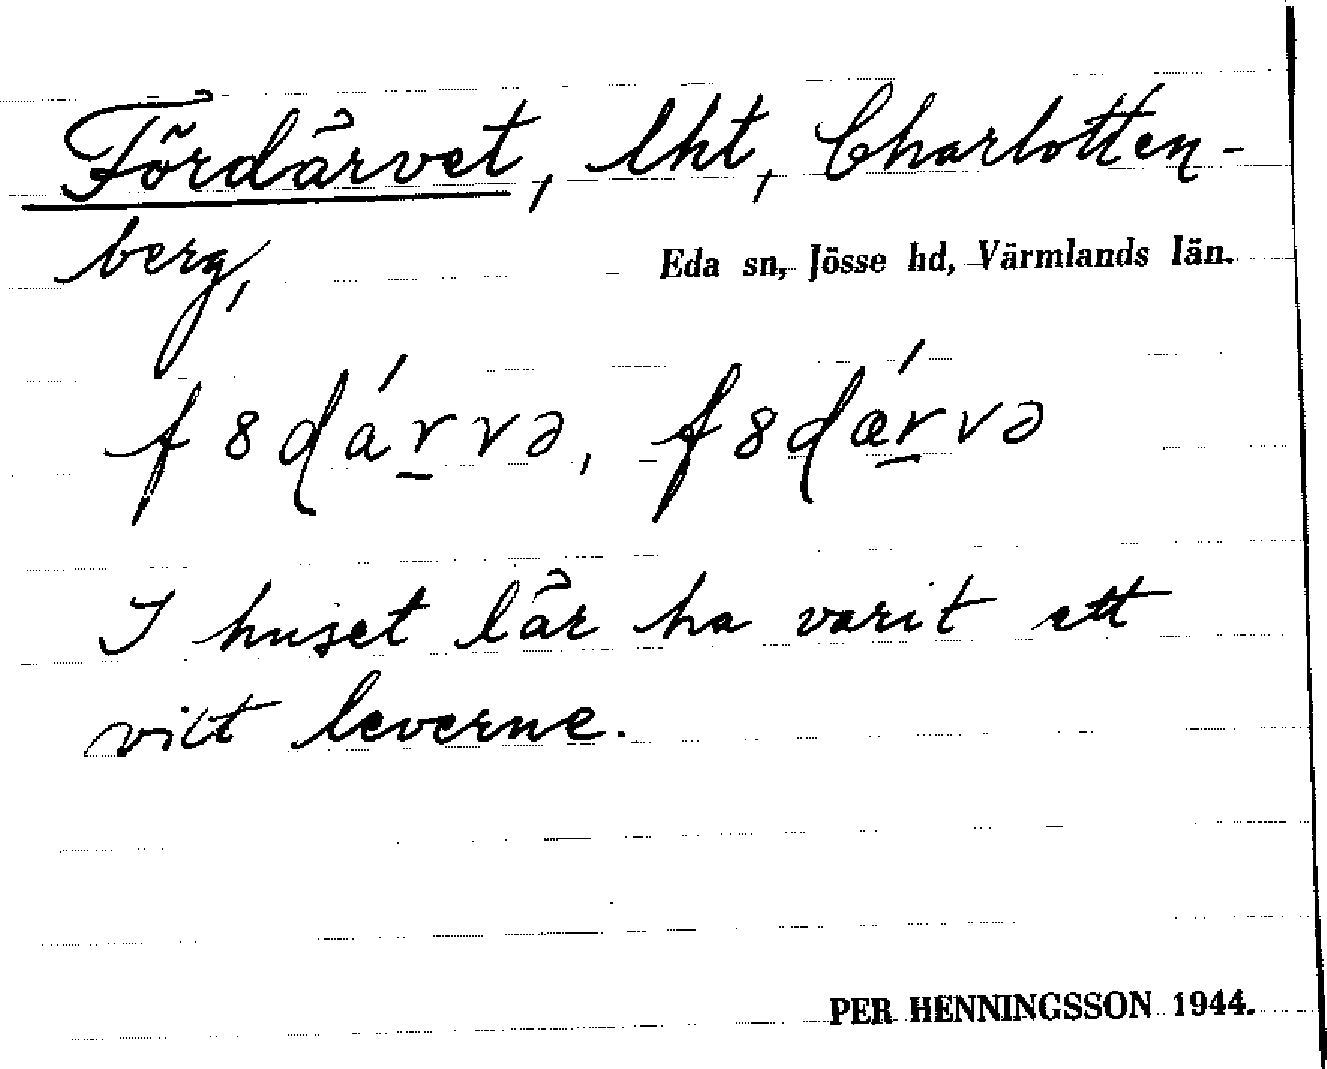 Fördärvet, lht, Charlotten-
berg,
Eda sn, Jösse hd, Värmlands län.
f8dárvə, f8dǽrvə
I huset lär ha varit ett
vilt leverne.
PER HENNINGSSON 1944.